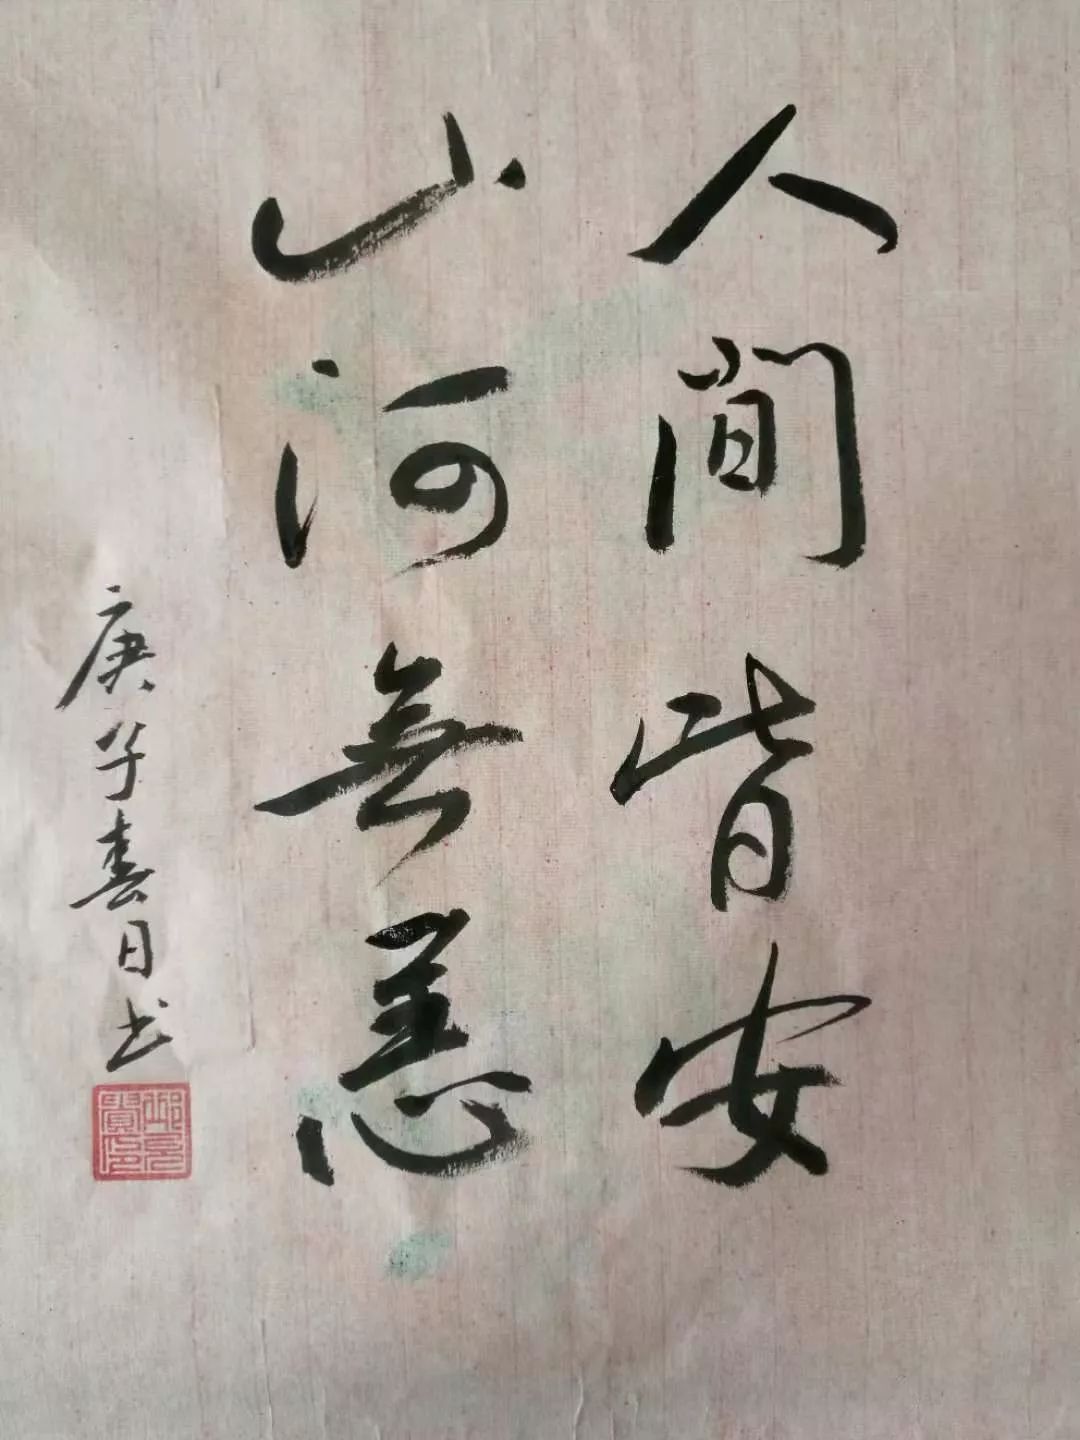 人間皆安
山河無恙
庚子春日书